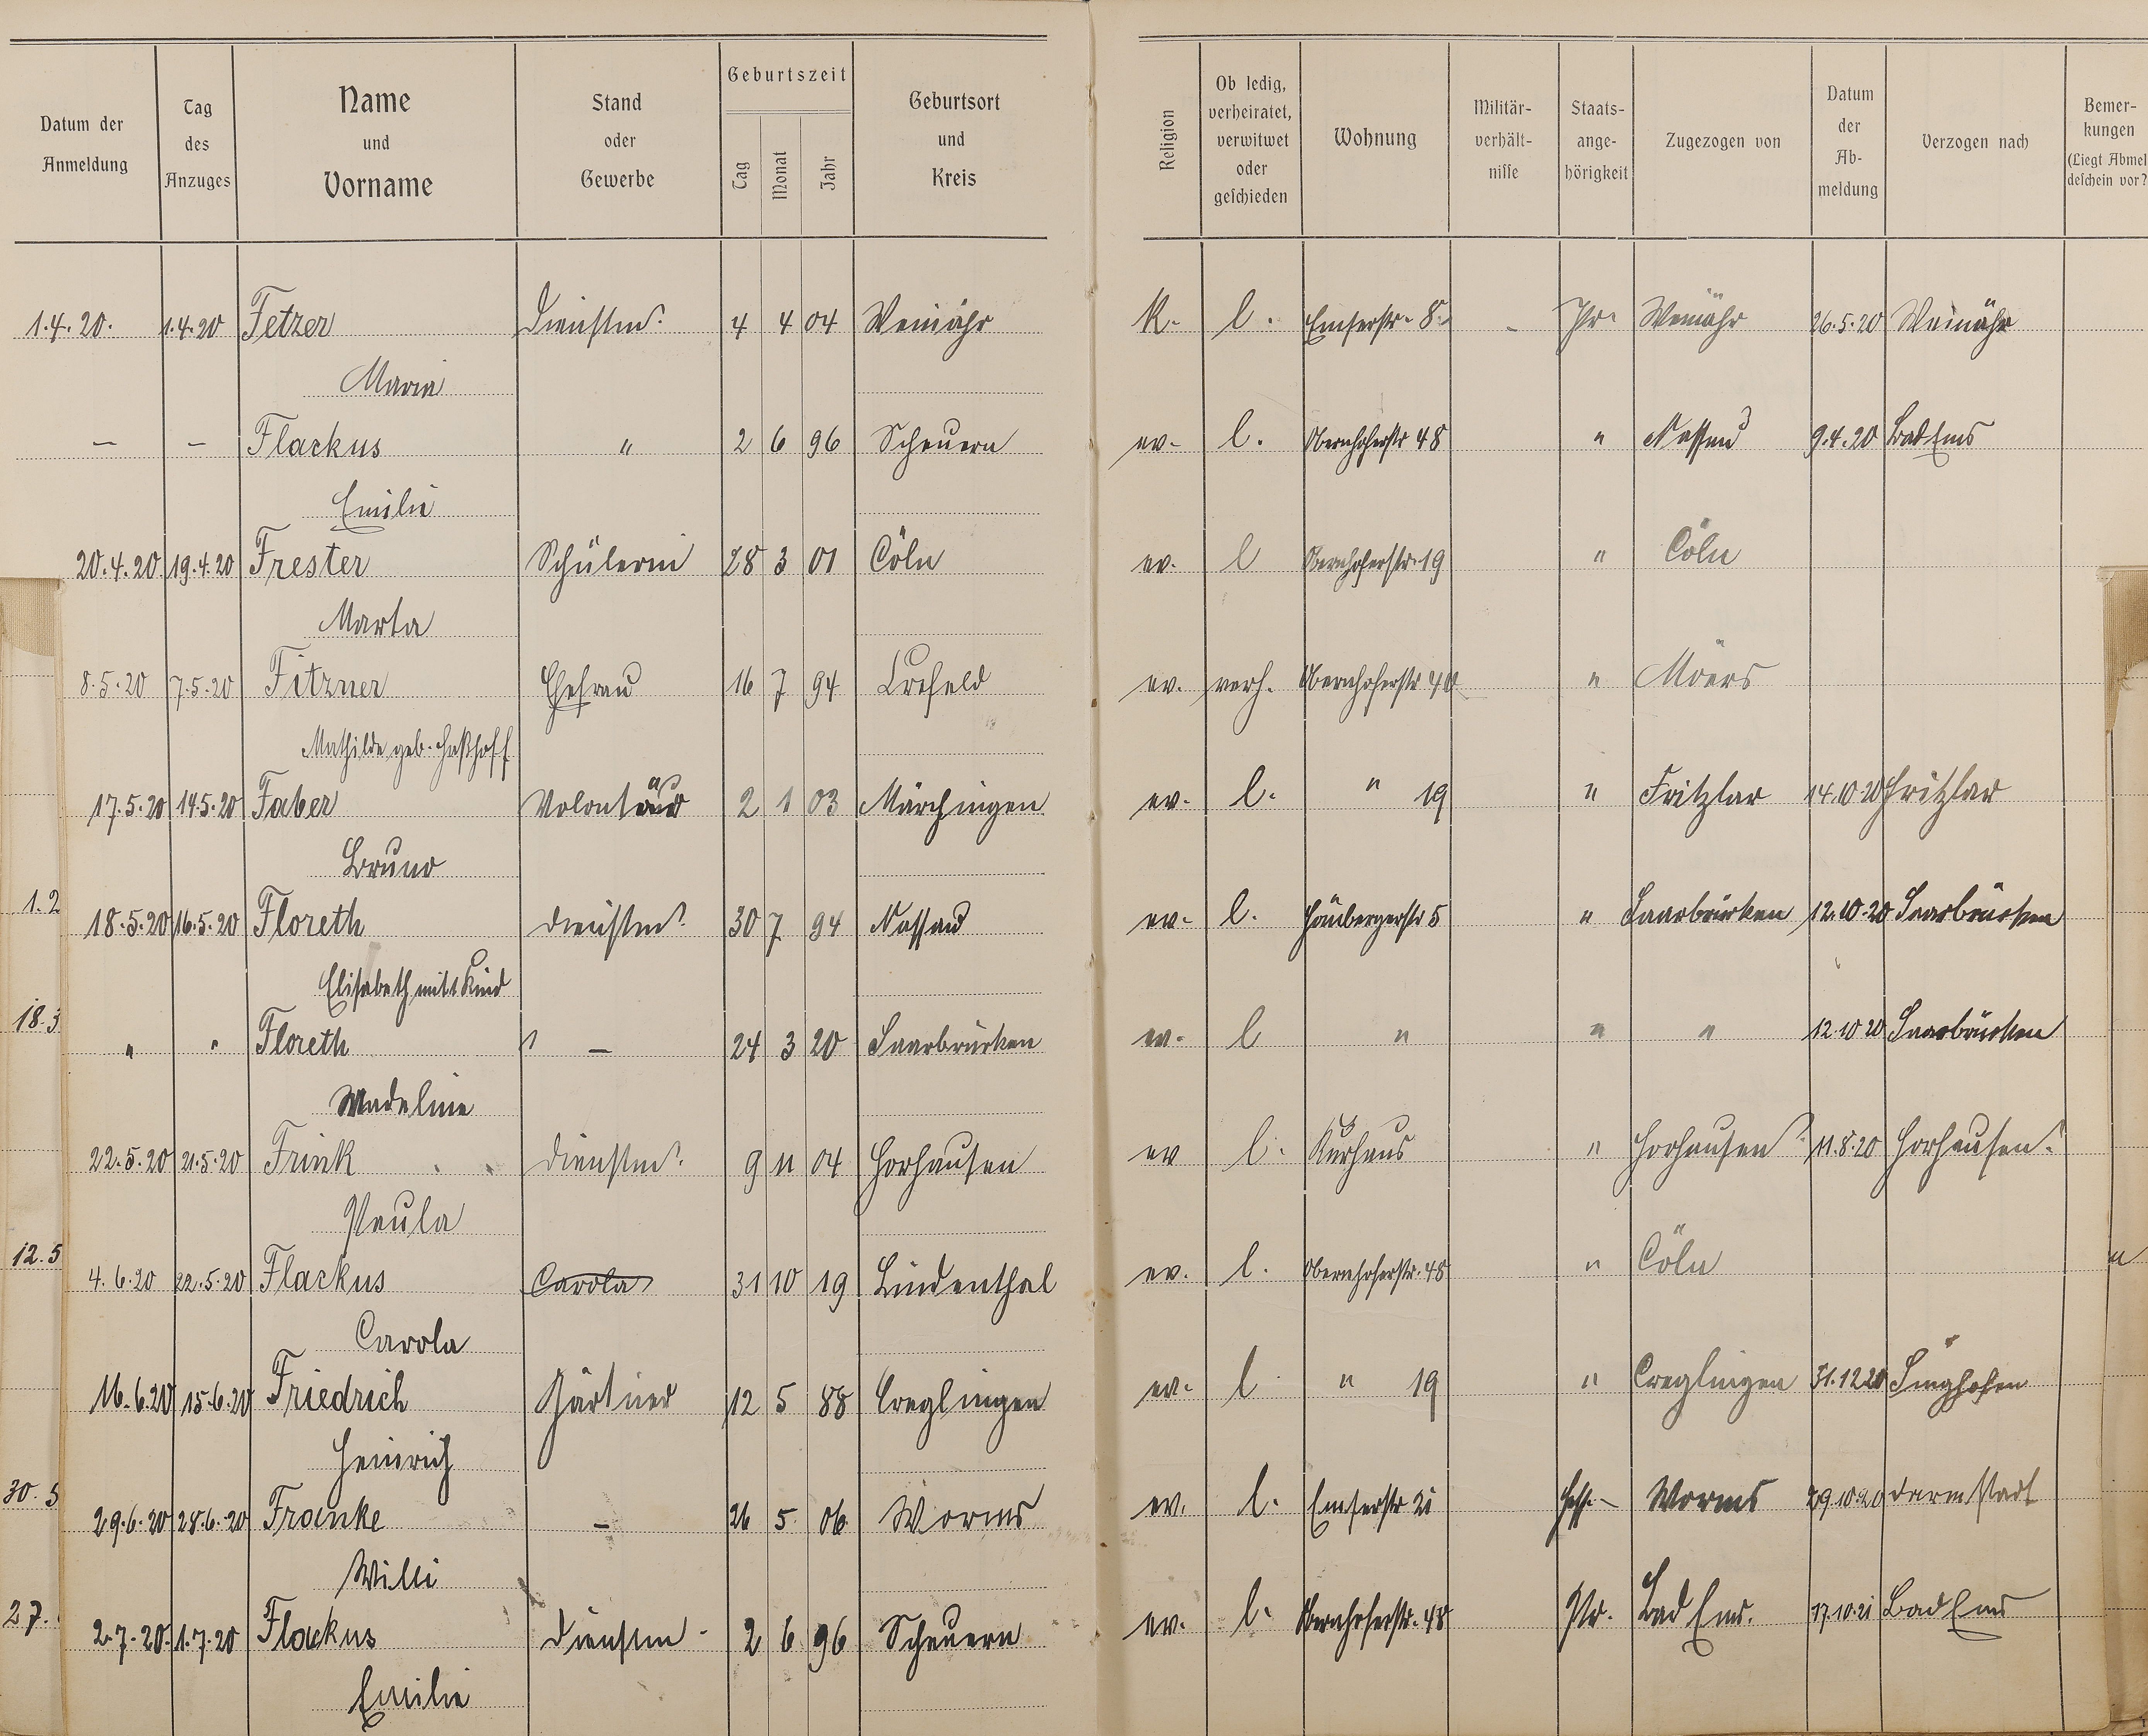 Datum der Anmeldung | Tag des Anzuges | Name und Vorname | Stand oder Gewerbe | Geburtszeit Tag Monat Jahr | Geburtsort und Kreis | Religion | Ob ledig, verheiratet, verwitwet oder geschieden | Wohnung | Militär-verhält-nisse | Staats-ange-hörigkeit | Zugezogen von | Datum der Ab-meldung | Verzogen nach | Bemer-kungen (Liegt Abmel deschein vor?
1.4.20. 1.4.20 Fetzer Dienstm. 4 4 04 Weinähr K. l. Emserstr. 8. - Pr. Weinähr 26.5.20 Weinähr
Maria
— — Flackus " 2 6 96 Scheuern ev. l. Obernhoferstr 48 " Nassau 9.4.20 Bad Ems
Emilie
20.4.20 19.4.20 Frester Schülerin 28 3 01 Cöln ev. l Obernhoferstr. 19 " Cöln
Marta
8.5.20 7.5.20 Fitzner Ehefrau 16 7 94 Crefeld ev. verh. Obernhoferstr " Mörs
Mathilde geb.
17.5.20 14.5.20 Faber Volontär 2 1 03 Märchingen ev. l. " 19 " Fritzlar 14.10.20 Fritzlar
Bruno
1.2
18.5.20 16.5.20 Floreth Dienstm. 30 7 94 Nassau ev. l. Hömbergerstr 5 " Saarbrücken 12.10.20 Saarbrücken
Elisabeth mit 1 Kind
18.3
" " Floreth — 24 3 20 Saarbrücken ev. l " " " 12.10.20 Saarbrücken
Madeline
22.5.20 21.5.20 Frink Dienstm. 9 11 04 Horhausen ev l. Kurhaus " Horhausen 11.8.20 Horhausen
Paula
12.5
4.6.20 22.5.20 Flackus Carola 31 10 19 Lindenthal ev. l. Obernhoferstr. 48 " Cöln
Carola
16.6.20 15.6.20 Friedrich Gärtner 12 5 88 Creglingen ev. l " 19 " Creglingen 31.12.20 Singhofen
Heinrich
30.5
29.6.20 28.6.20 Franke — 26 5 06 Worms ev. l. Emserstr 21 Hess. Worms 29.10.20 Darmstadt
Willi
27.
2.7.20. 1.7.20 Flackus Dienstm. 2 6 96 Scheuern ev. l. Obernhoferstr. 48 Pr. Bad Ems. 17.10.21 Bad Ems
Emilie